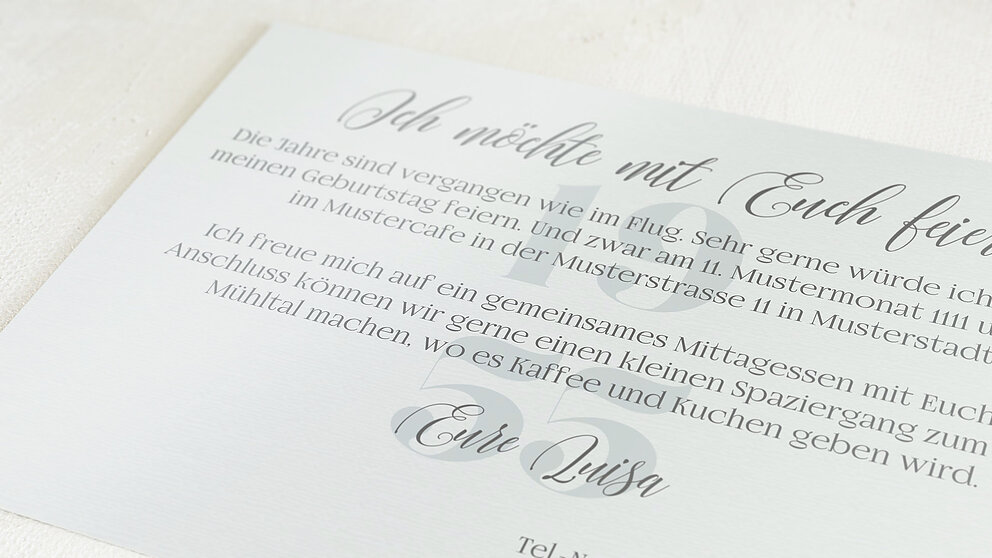 Ich möchte mit Euch feier
Die Jahre sind vergangen wie im Flug. Sehr gerne würde ich
meinen Geburtstag feiern. Und zwar am 11. Mustermonat 1111 u
im Mustercafe in der Musterstrasse 11 in Musterstadt
Ich freue mich auf ein gemeinsames Mittagessen mit Euch
Anschluss können wir gerne einen kleinen Spaziergang zum
Mühltal machen, wo es Kaffee und Kuchen geben wird.
19
55
Eure Luisa
Tel.-N